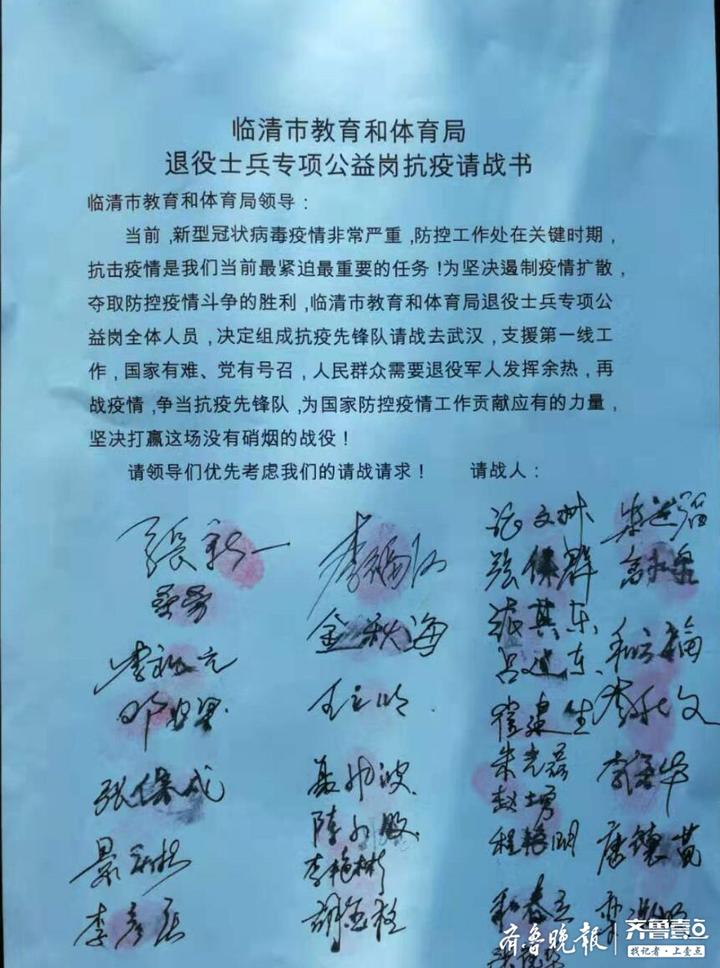 临清市教育和体育局
退役士兵专项公益岗抗疫请战书
临清市教育和体育局领导：
当前，新型冠状病毒疫情非常严重，防控工作处在关键时期，
抗击疫情是我们当前最紧迫最重要的任务！为坚决遏制疫情扩散，
夺取防控疫情斗争的胜利，临清市教育和体育局退役士兵专项公
益岗全体人员，决定组成抗疫先锋队请战去武汉，支援第一线工
作，国家有难、党有号召，人民群众需要退役军人发挥余热，再
战疫情，争当抗疫先锋队，为国家防控疫情工作贡献应有的力量，
坚决打赢这场没有硝烟的战役！
请领导们优先考虑我们的请战请求！ 请战人：
張新一
金秋海
张其东
吕建东
崔建生
张保成
朱光磊
赵士勇
陈
李艳彬
程艳明
李彦
和春立
齐鲁晚报
齐鲁壹点
找记者·上壹点